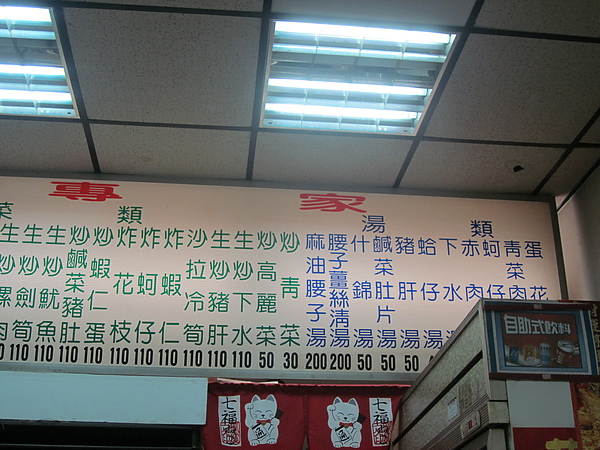 專家
菜類
生炒螺肉
生炒劍筍 110
生炒魷魚 110
炒鹹菜豬肚 110
炒蝦仁蛋 110
炸花枝 110
炸蚵仔 110
炸蝦仁 110
沙拉冷筍 110
生炒豬肝 110
生炒下水 110
炒高麗菜 50
炒青菜 30
湯類
麻油腰子湯 200
腰子薑絲清湯 200
什錦湯 50
鹹菜肚片湯 50
豬肝湯 50
蛤仔湯
下水湯
赤肉
蚵仔
青菜肉
蛋花
自助式飲料
七福
七福